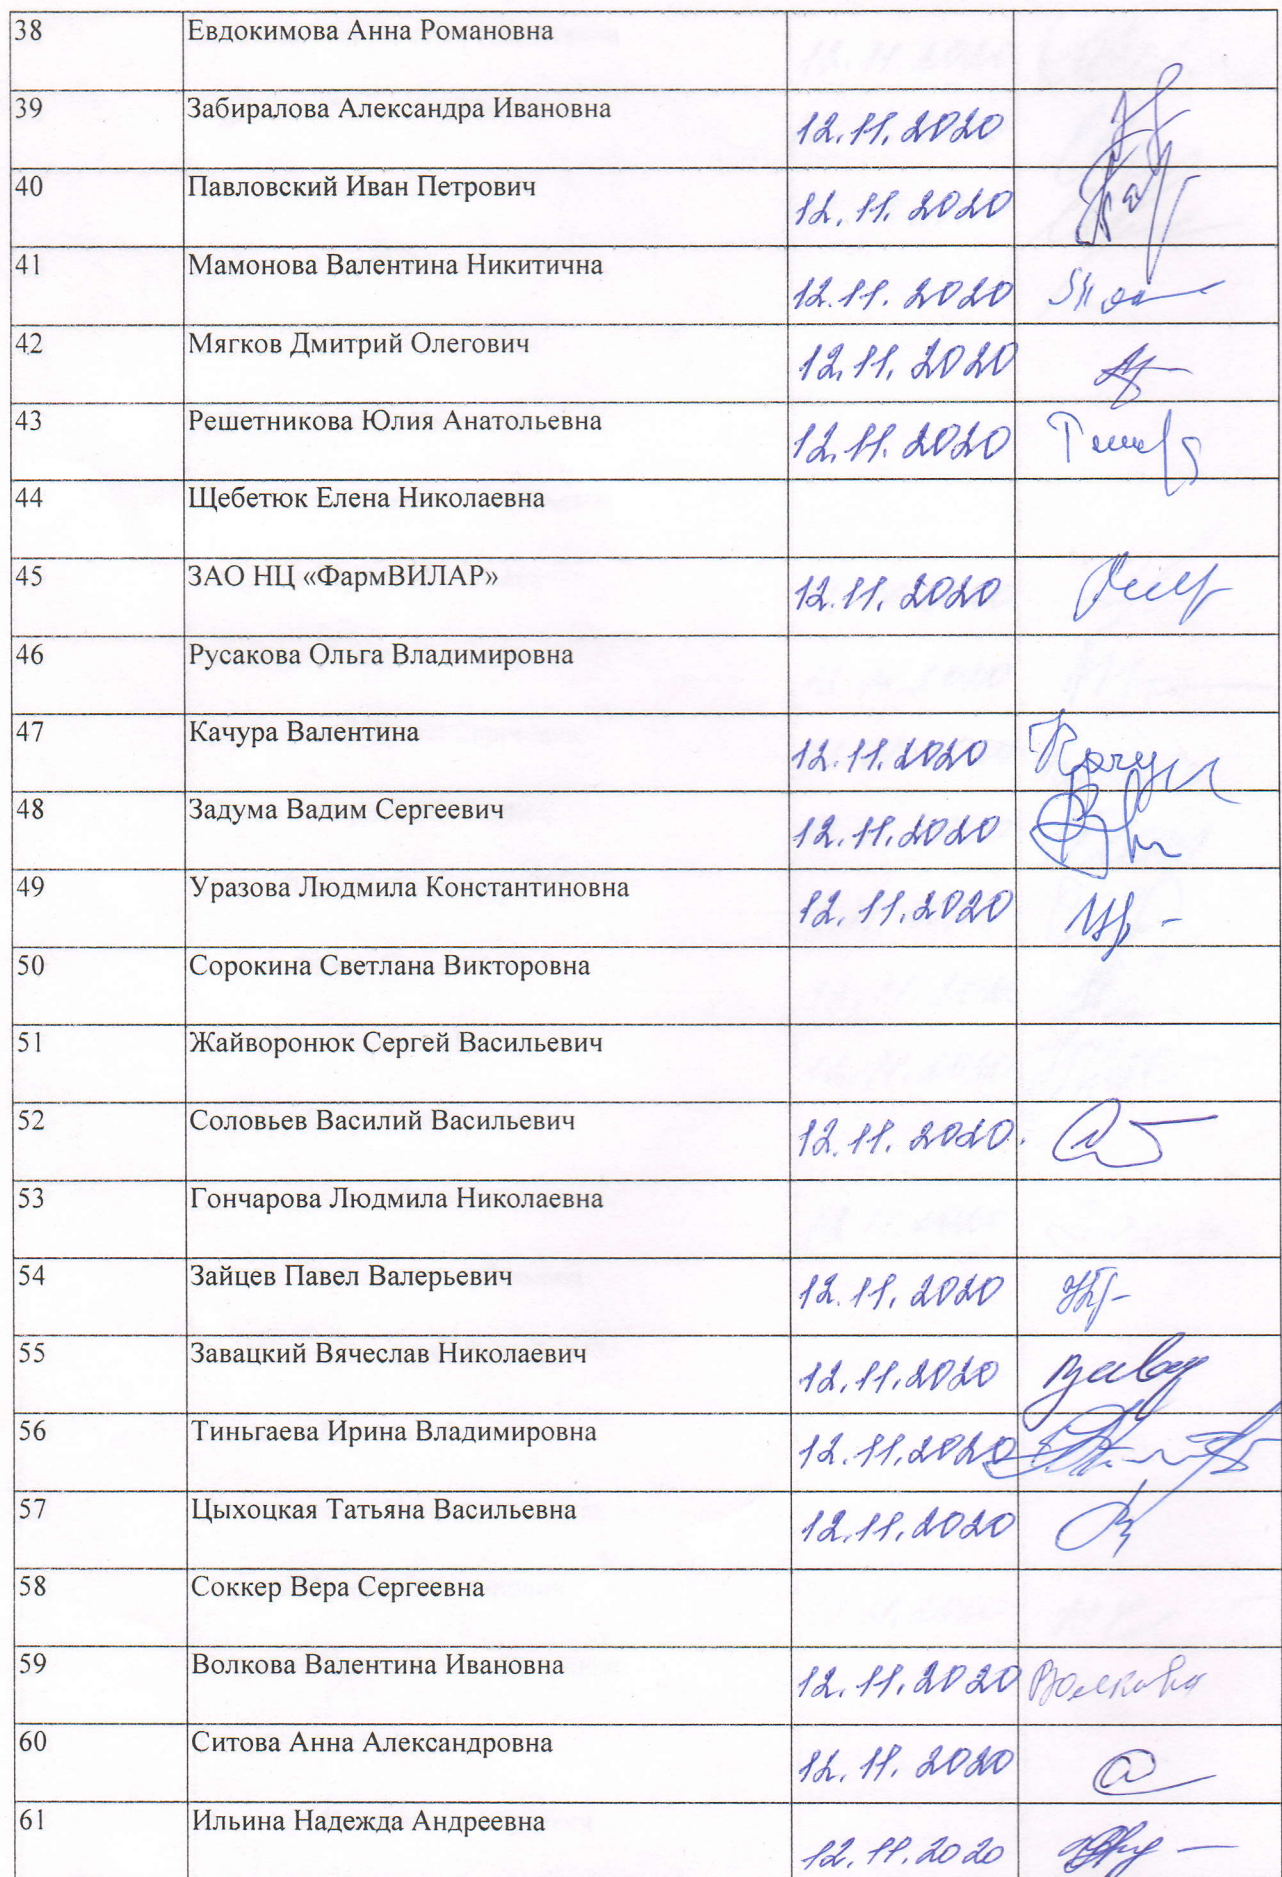 38 Евдокимова Анна Романовна
39 Забиралова Александра Ивановна 12.11.2020
40 Павловский Иван Петрович 12.11.2020
41 Мамонова Валентина Никитична 12.11.2020
42 Мягков Дмитрий Олегович 12.11.2020
43 Решетникова Юлия Анатольевна 12.11.2020
44 Щебетюк Елена Николаевна
45 ЗАО НЦ «ФармВИЛАР» 12.11.2020
46 Русакова Ольга Владимировна
47 Качура Валентина 12.11.2020
48 Задума Вадим Сергеевич 12.11.2020
49 Уразова Людмила Константиновна 12.11.2020
50 Сорокина Светлана Викторовна
51 Жайворонюк Сергей Васильевич
52 Соловьев Василий Васильевич 12.11.2020.
53 Гончарова Людмила Николаевна
54 Зайцев Павел Валерьевич 12.11.2020
55 Завацкий Вячеслав Николаевич 12.11.2020
56 Тиньгаева Ирина Владимировна 12.11.2020
57 Цыхоцкая Татьяна Васильевна 12.11.2020
58 Соккер Вера Сергеевна
59 Волкова Валентина Ивановна 12.11.2020 Волкова
60 Ситова Анна Александровна 12.11.2020
61 Ильина Надежда Андреевна 12.11.2020